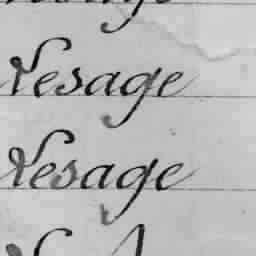 Lesage
Lesage